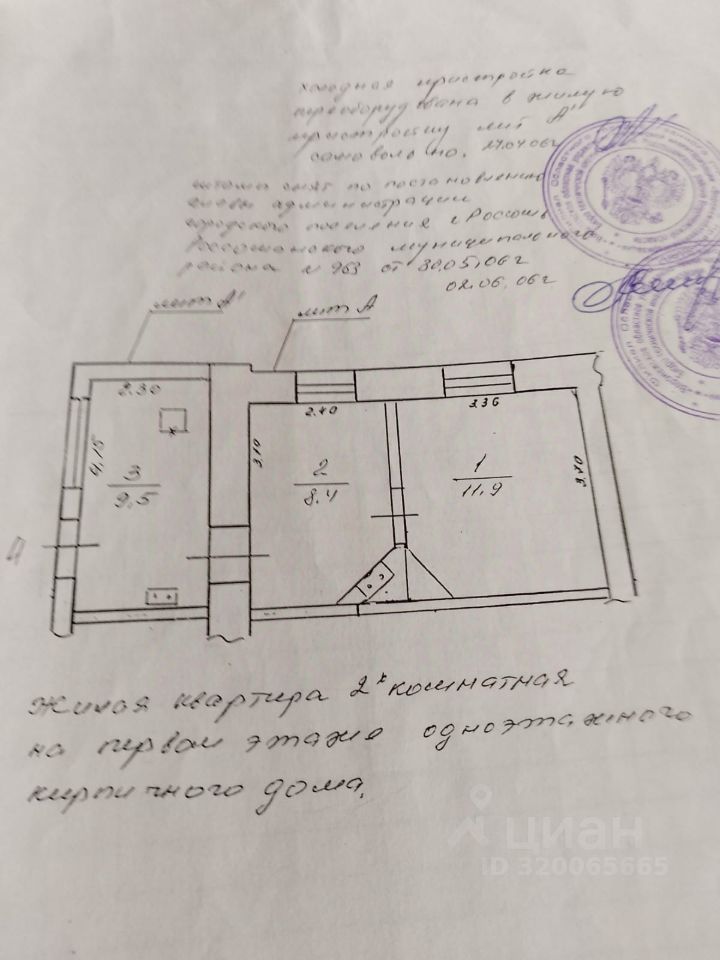 холодная пристройка
переоборудована в жилую
пристройку лит А'
самовольно. 27.04.06г
штамп снят по постановлению
главы администрации
городского поселения г. Россошь
Россошанского муниципального
района № 963 от 30.05.06г
02.06.06г
лит А'
лит А
2.30
4,15
3
9.5
2.40
3.10
2
8.4
3.36
3.70
1
11.9
Жилая квартира 2х комнатная
на первом этаже одноэтажного
кирпичного дома.
циан
ID 320065665